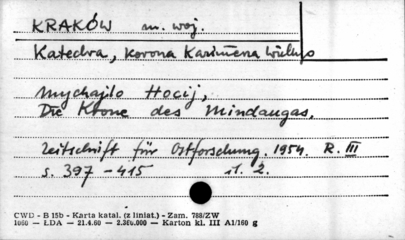 KRAKÓW m. woj.
Katedra, korona Kazimierza Wielk.
Mychajlo Hocij,
Die Krone des Mindaugas.
Zeitschrift für Ostforschung. 1954. R. III
s. 397-415 il. 2.
CWD - B 15b - Karta katal. (z liniat.) - Zam. 788/ZW
1060 — ŁDA — 21.4.60 — 2.386.000 — Karton kl. III A1/160 g